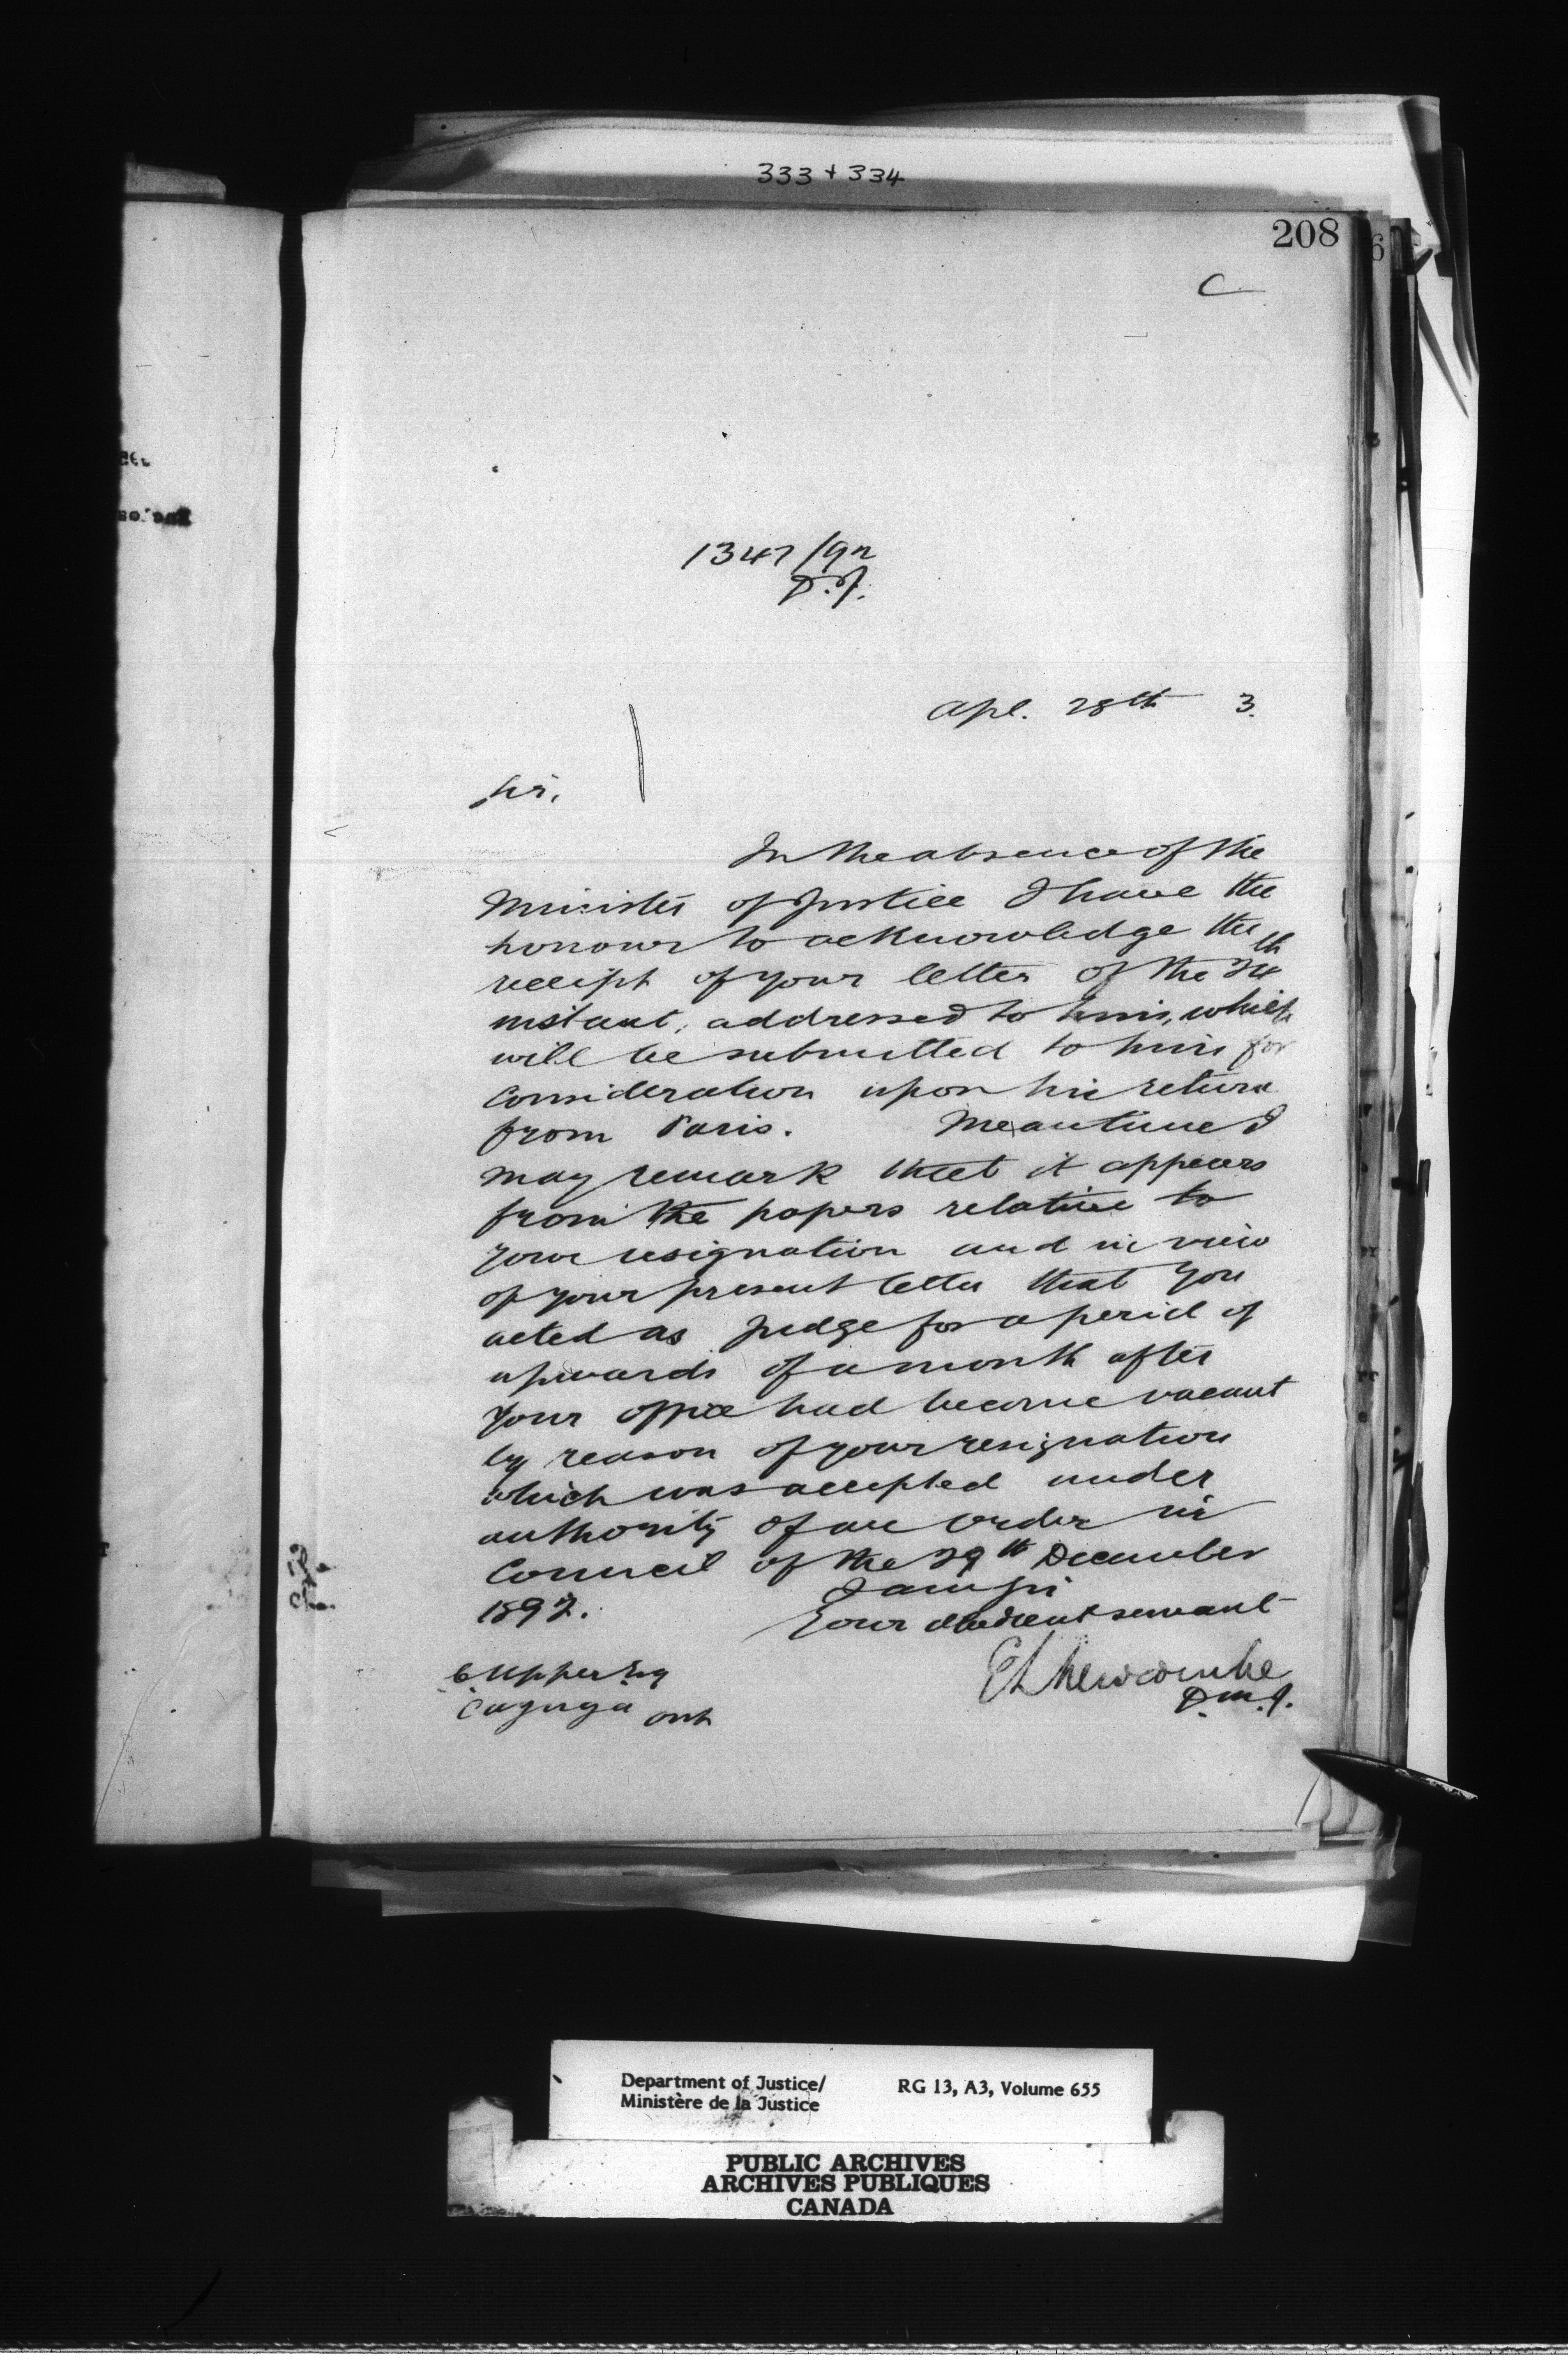 333 + 334
208
C
1347/92
D.J.
Apl. 28th 3.
Sir,
In the absence of the
Minister of Justice I have the
honour to acknowledge the
receipt of your letter of the 24th
instant, addressed to him, which
will be submitted to him for
consideration upon his return
from Paris. Meantime I
may remark that it appears
from the papers relative to
your resignation and in view
of your present letter that you
acted as Judge for a period of
upwards of a month after
your office had become vacant
by reason of your resignation
which was accepted under
authority of an order in
Council of the 29th December
1892. I am Sir
Your obedient servant
E L Newcombe
D.M.J.
C Upper Esq
Cayuga Ont
Department of Justice/
Ministère de la Justice
RG 13, A3, Volume 655
PUBLIC ARCHIVES
ARCHIVES PUBLIQUES
CANADA